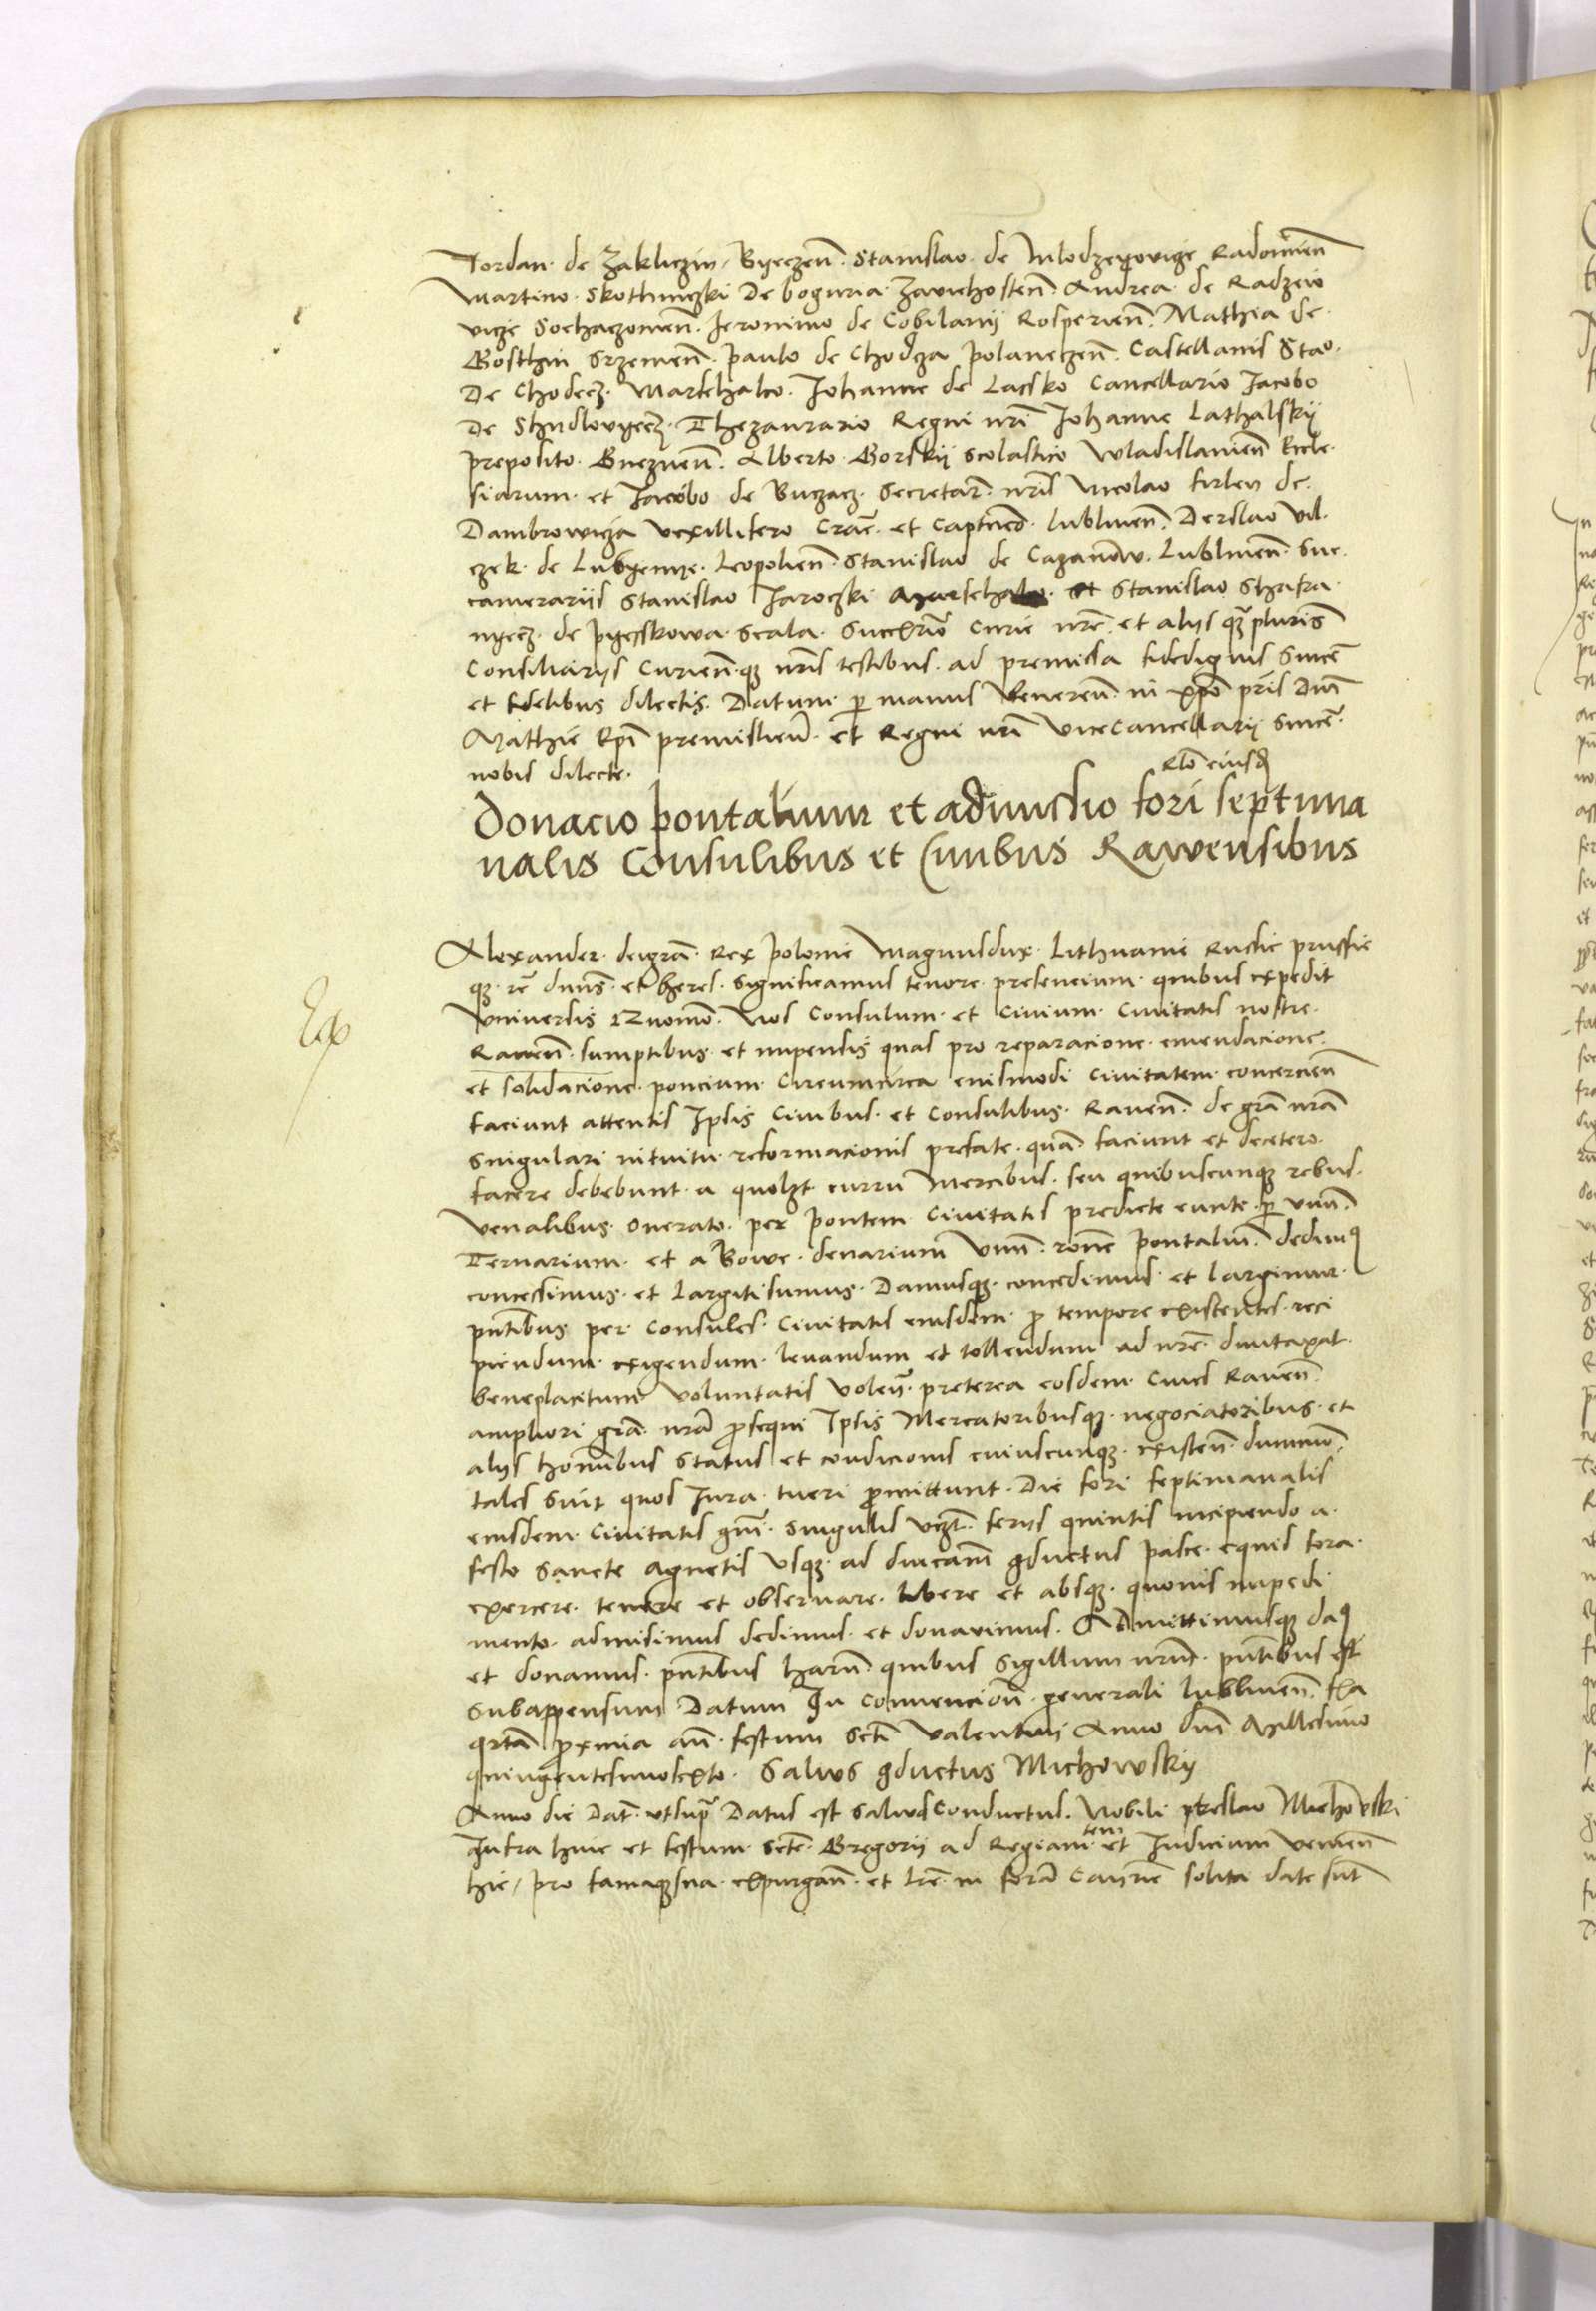 Jordan de Zakliczin Byeczen̄ Stanislao de Mlodzeyovicze Radomien̄
Martino Skothniczki de boguria Zavichosten̄ Andrea de Radzeio
vicze Sochaczovien̄ Jeronimo de Cobilanij Rosperien̄ Mathia de
Bosthin Srzemen̄ paulo de Chodcza polaneczen̄ Castellanis Stao
De Chodecz Marschalco Johanne de Lassko Cancellario Jacobo
De Shydlovyecz Thezaurario Regni nr̄i Johanne Lathalskij
preposito Gneznen̄ Alberto Gorskij scolastico Wladislavien̄ Eccle
siarum et Jacobo de Buczacz Secretar̄ nr̄is Nicolao firley de
Dambrowicza vexillifero Crac̄ et Captn̄eo lublinen̄ Derslao Vil
czek de Lubyenye Leopolien̄ Stanislao de Cazanow Lublinen̄ Suc
camerariis Stanislao Jaroczki Marschalco et Stanislao Shafra
nyecz de pyesskowa Scala Succam̄rio Curie nr̄e et aliis qz plurīs
Consiliariis Curien̄qz nr̄is testibus ad premissa fidedignis Sincē
et fidelibus dilectis Datum p manus Reveren̄ in xp̄o pr̄is Dn̄i
Mathie Ep̄i premislien̄ et Regni nr̄i ViceCancellarij Sincē
nobis dilecte
Rlō eiusd
Donacio pontalium et adiunctio fori septima
nalis Consulibus et Civibus Rawensibus
Alexander dei grā Rex polonie Magnusdux Lithuanie Russie prussie
qz rc̄ dn̄us et heres Significamus tenore presencium quibus expedit
Universis Quomō Nos Consulum et Civium Civitatis nostre
Raven̄ sumptibus et impensis quas pro reparacione emendacione
et solidacione poncium Circumcirca eiusmodi Civitatem concernen̄
faciunt attentis Ipsis Civibus et Consulibus Raven̄ de grā nrā
singulari intuitu reformacionis prefate quā faciunt et decetero
facere debebunt a quolzt curru Mercibus seu quibuscunqz rebus
Venalibus onerato per pontem Civitatis predicte eunte p unū
Ternarium et a Bove denarium Unū rōne pontaliū dedimq
concessimus et largiti sumus Damusqz concedimus et largimur
pn̄tibus per Consules Civitatis eiusdem p tempore existentes reci
piendum exigendum levandum et tollendum ad nr̄e duntaxat
beneplacitum voluntatis Volen̄ preterea eosdem Cives Raven̄
ampliori grā nrā psequi Ipsis Mercatoribusqz negociatoribus et
aliis hominibus Status et condicionis cuiuscunqz existen̄ dummō
tales sint quos Jura tueri pmittunt Die fori septimanalis
eiusdem Civitatis gn̄i singulis vzt feriis quintis incipiendo a
festo Sancte Agnetis Usqz ad duicam gductus pasce equis fora
exercere tenere et observare libere et absqz quovis impedi
mento admisimus dedimus et donavimus Admittimusqz daq
et donamus pn̄tibus harū quibus Sigillum nr̄um pn̄tibus est
Subappensum Datum In Convencion̄ generali lublinen̄ fia
qrtā pxmia an̄ festum Scti Valentini Anno dn̄i Millesimo
quingentesimosexto Salvus gductus Michowskij
Anno die Dat̄ utsup̄ Datus est salvusConductus Nobili predslao Michovski
Infra hinc et festum Scte Gregorii ad Regiam tem et Judicium venien̄
hic / pro famaqz sua expurgan̄ et lrē in formā Canc̄rie solita date sūt
Ex